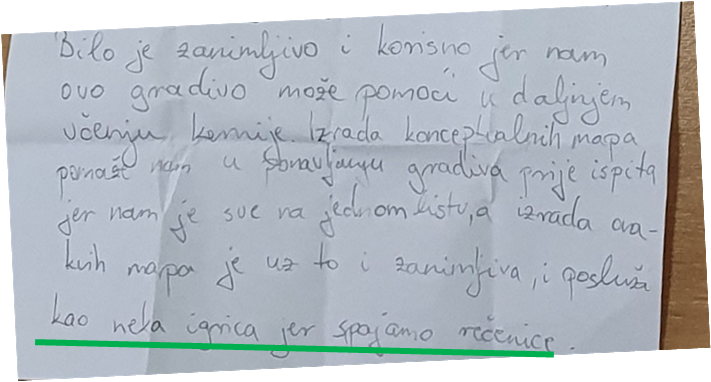 Bilo je zanimljivo i korisno jer nam
ovo gradivo može pomoći u daljnjem
učenju kemije. Izrada konceptualnih mapa
pomaže nam u ponavljanju gradiva prije ispita
jer nam je sve na jednom listu, a izrada ova-
kvih mapa je uz to i zanimljiva, i posluži
kao neka igrica jer spajamo rečenice.